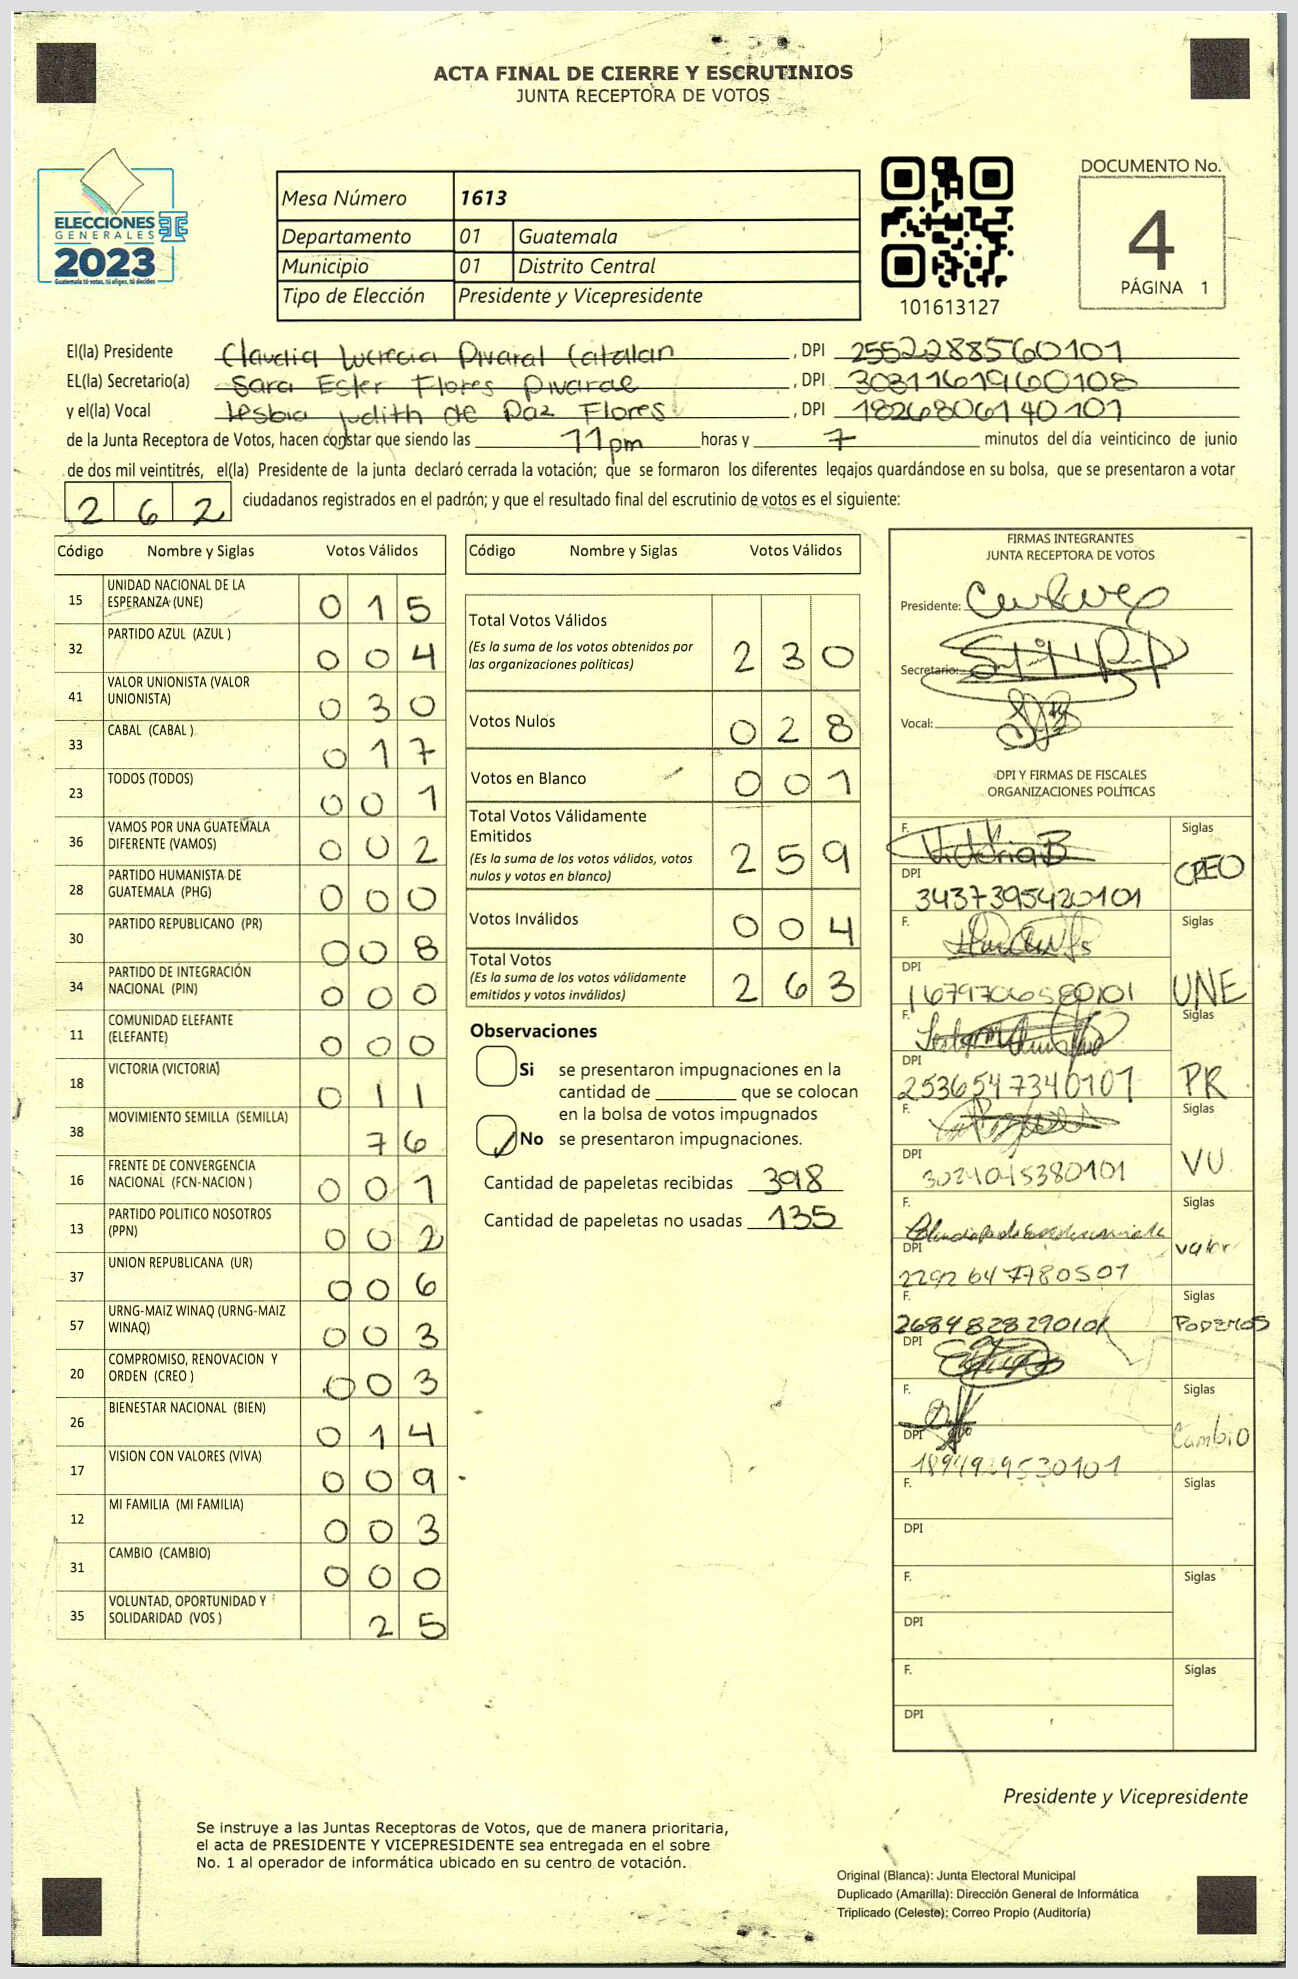 ACTA FINAL DE CIERRE Y ESCRUTINIOS
JUNTA RECEPTORA DE VOTOS
ELECCIONES
GENERALES
2023
Guatemala tú votas, tú eliges, tú decides
Mesa Número 1613
Departamento 01 Guatemala
Municipio 01 Distrito Central
Tipo de Elección Presidente y Vicepresidente
101613127
DOCUMENTO No.
4
PÁGINA 1
El(la) Presidente Claudia Lucrecia Pivaral Catalan , DPI 2552288560101
EL(la) Secretario(a) Sara Ester Flores Pivaral , DPI 3031161960108
y el(la) Vocal Lesbia Judith de Paz Flores , DPI 1826806140101
de la Junta Receptora de Votos, hacen constar que siendo las 11pm horas y 7 minutos del día veinticinco de junio
de dos mil veintitrés, el(la) Presidente de la junta declaró cerrada la votación; que se formaron los diferentes legajos quardándose en su bolsa, que se presentaron a votar
262 ciudadanos registrados en el padrón; y que el resultado final del escrutinio de votos es el siguiente:
Código Nombre y Siglas Votos Válidos
15 UNIDAD NACIONAL DE LA ESPERANZA (UNE) 015
32 PARTIDO AZUL (AZUL ) 004
41 VALOR UNIONISTA (VALOR UNIONISTA) 030
33 CABAL (CABAL ) 017
23 TODOS (TODOS) 001
36 VAMOS POR UNA GUATEMALA DIFERENTE (VAMOS) 002
28 PARTIDO HUMANISTA DE GUATEMALA (PHG) 000
30 PARTIDO REPUBLICANO (PR) 008
34 PARTIDO DE INTEGRACIÓN NACIONAL (PIN) 000
11 COMUNIDAD ELEFANTE (ELEFANTE) 000
18 VICTORIA (VICTORIA) 011
38 MOVIMIENTO SEMILLA (SEMILLA) 76
16 FRENTE DE CONVERGENCIA NACIONAL (FCN-NACION ) 001
13 PARTIDO POLITICO NOSOTROS (PPN) 002
37 UNION REPUBLICANA (UR) 006
57 URNG-MAIZ WINAQ (URNG-MAIZ WINAQ) 003
20 COMPROMISO, RENOVACION Y ORDEN (CREO ) 003
26 BIENESTAR NACIONAL (BIEN) 014
17 VISION CON VALORES (VIVA) 009
12 MI FAMILIA (MI FAMILIA) 003
31 CAMBIO (CAMBIO) 000
35 VOLUNTAD, OPORTUNIDAD Y SOLIDARIDAD (VOS ) 25
Código Nombre y Siglas Votos Válidos
Total Votos Válidos
(Es la suma de los votos obtenidos por
las organizaciones políticas) 230
Votos Nulos 028
Votos en Blanco 001
Total Votos Válidamente
Emitidos
(Es la suma de los votos válidos, votos
nulos y votos en blanco) 259
Votos Inválidos 004
Total Votos
(Es la suma de los votos válidamente
emitidos y votos inválidos) 263
Observaciones
Si se presentaron impugnaciones en la
cantidad de ________ que se colocan
en la bolsa de votos impugnados
No se presentaron impugnaciones.
Cantidad de papeletas recibidas 398
Cantidad de papeletas no usadas 135
FIRMAS INTEGRANTES
JUNTA RECEPTORA DE VOTOS
Presidente:
Secretario:
Vocal:
DPI Y FIRMAS DE FISCALES
ORGANIZACIONES POLÍTICAS
F. Victoria B Siglas CREO
DPI 3437395420101
F. Siglas UNE
DPI 1679706580101
F. Siglas PR
DPI 2536547340101
F. Siglas VU
DPI 3024045380101
F. Siglas valor
DPI 2292647780501
F. 2684828290101 Siglas PODEMOS
DPI
F. Siglas Cambio
DPI
F. Siglas
DPI
F. Siglas
DPI
F. Siglas
DPI
Presidente y Vicepresidente
Se instruye a las Juntas Receptoras de Votos, que de manera prioritaria,
el acta de PRESIDENTE Y VICEPRESIDENTE sea entregada en el sobre
No. 1 al operador de informática ubicado en su centro de votación.
Original (Blanca): Junta Electoral Municipal
Duplicado (Amarilla): Dirección General de Informática
Triplicado (Celeste): Correo Propio (Auditoría)